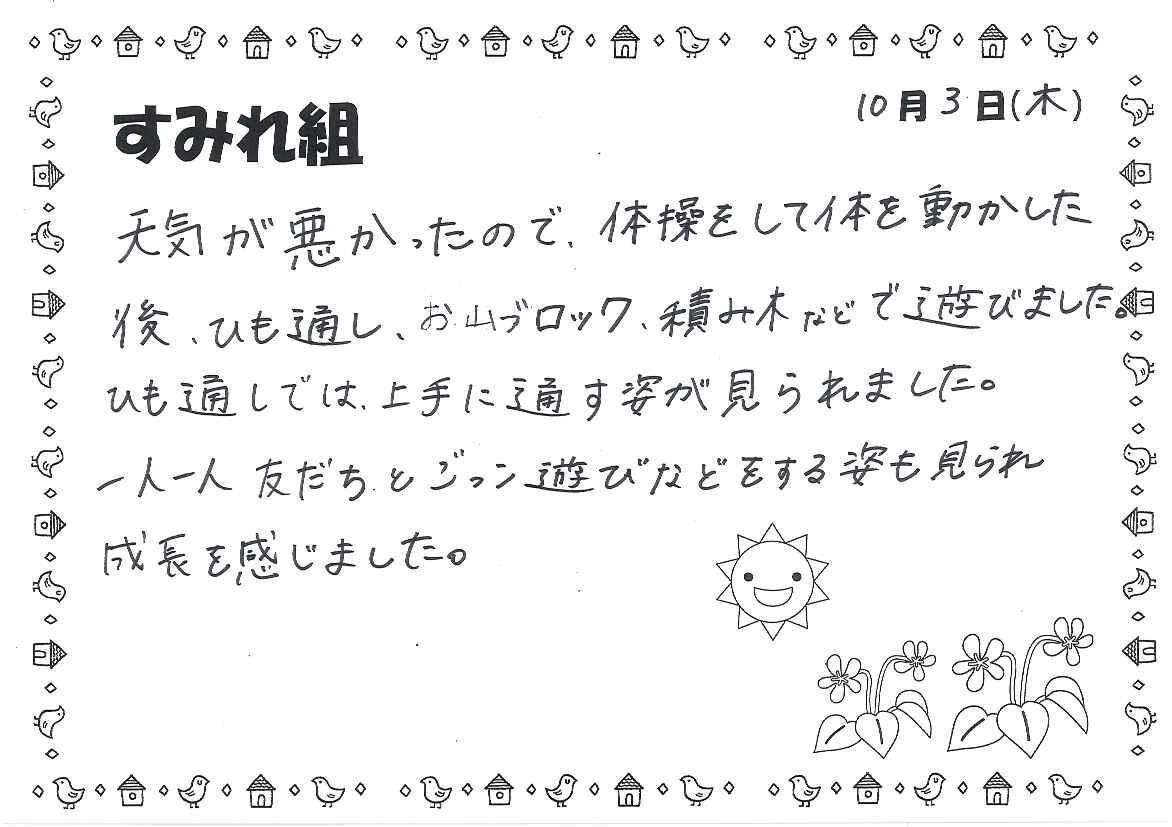 すみれ組
10月3日(木)
天気が悪かったので、体操をして体を動かした
後、ひも通し、お山ブロック、積み木などで遊びました。
ひも通しでは、上手に通す姿が見られました。
一人一人友だちとごっこ遊びなどをする姿も見られ
成長を感じました。